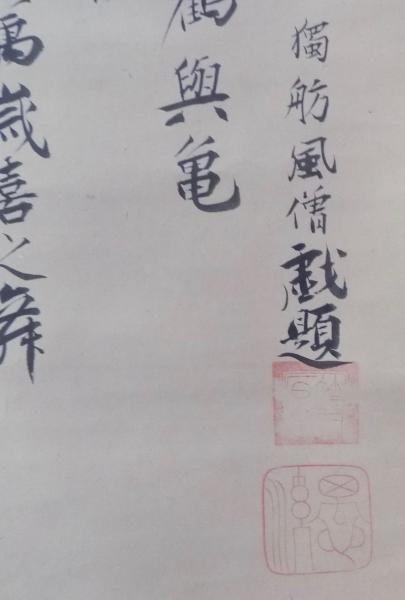 獨舫風僧戯題
鶴與亀
萬歳喜之舞